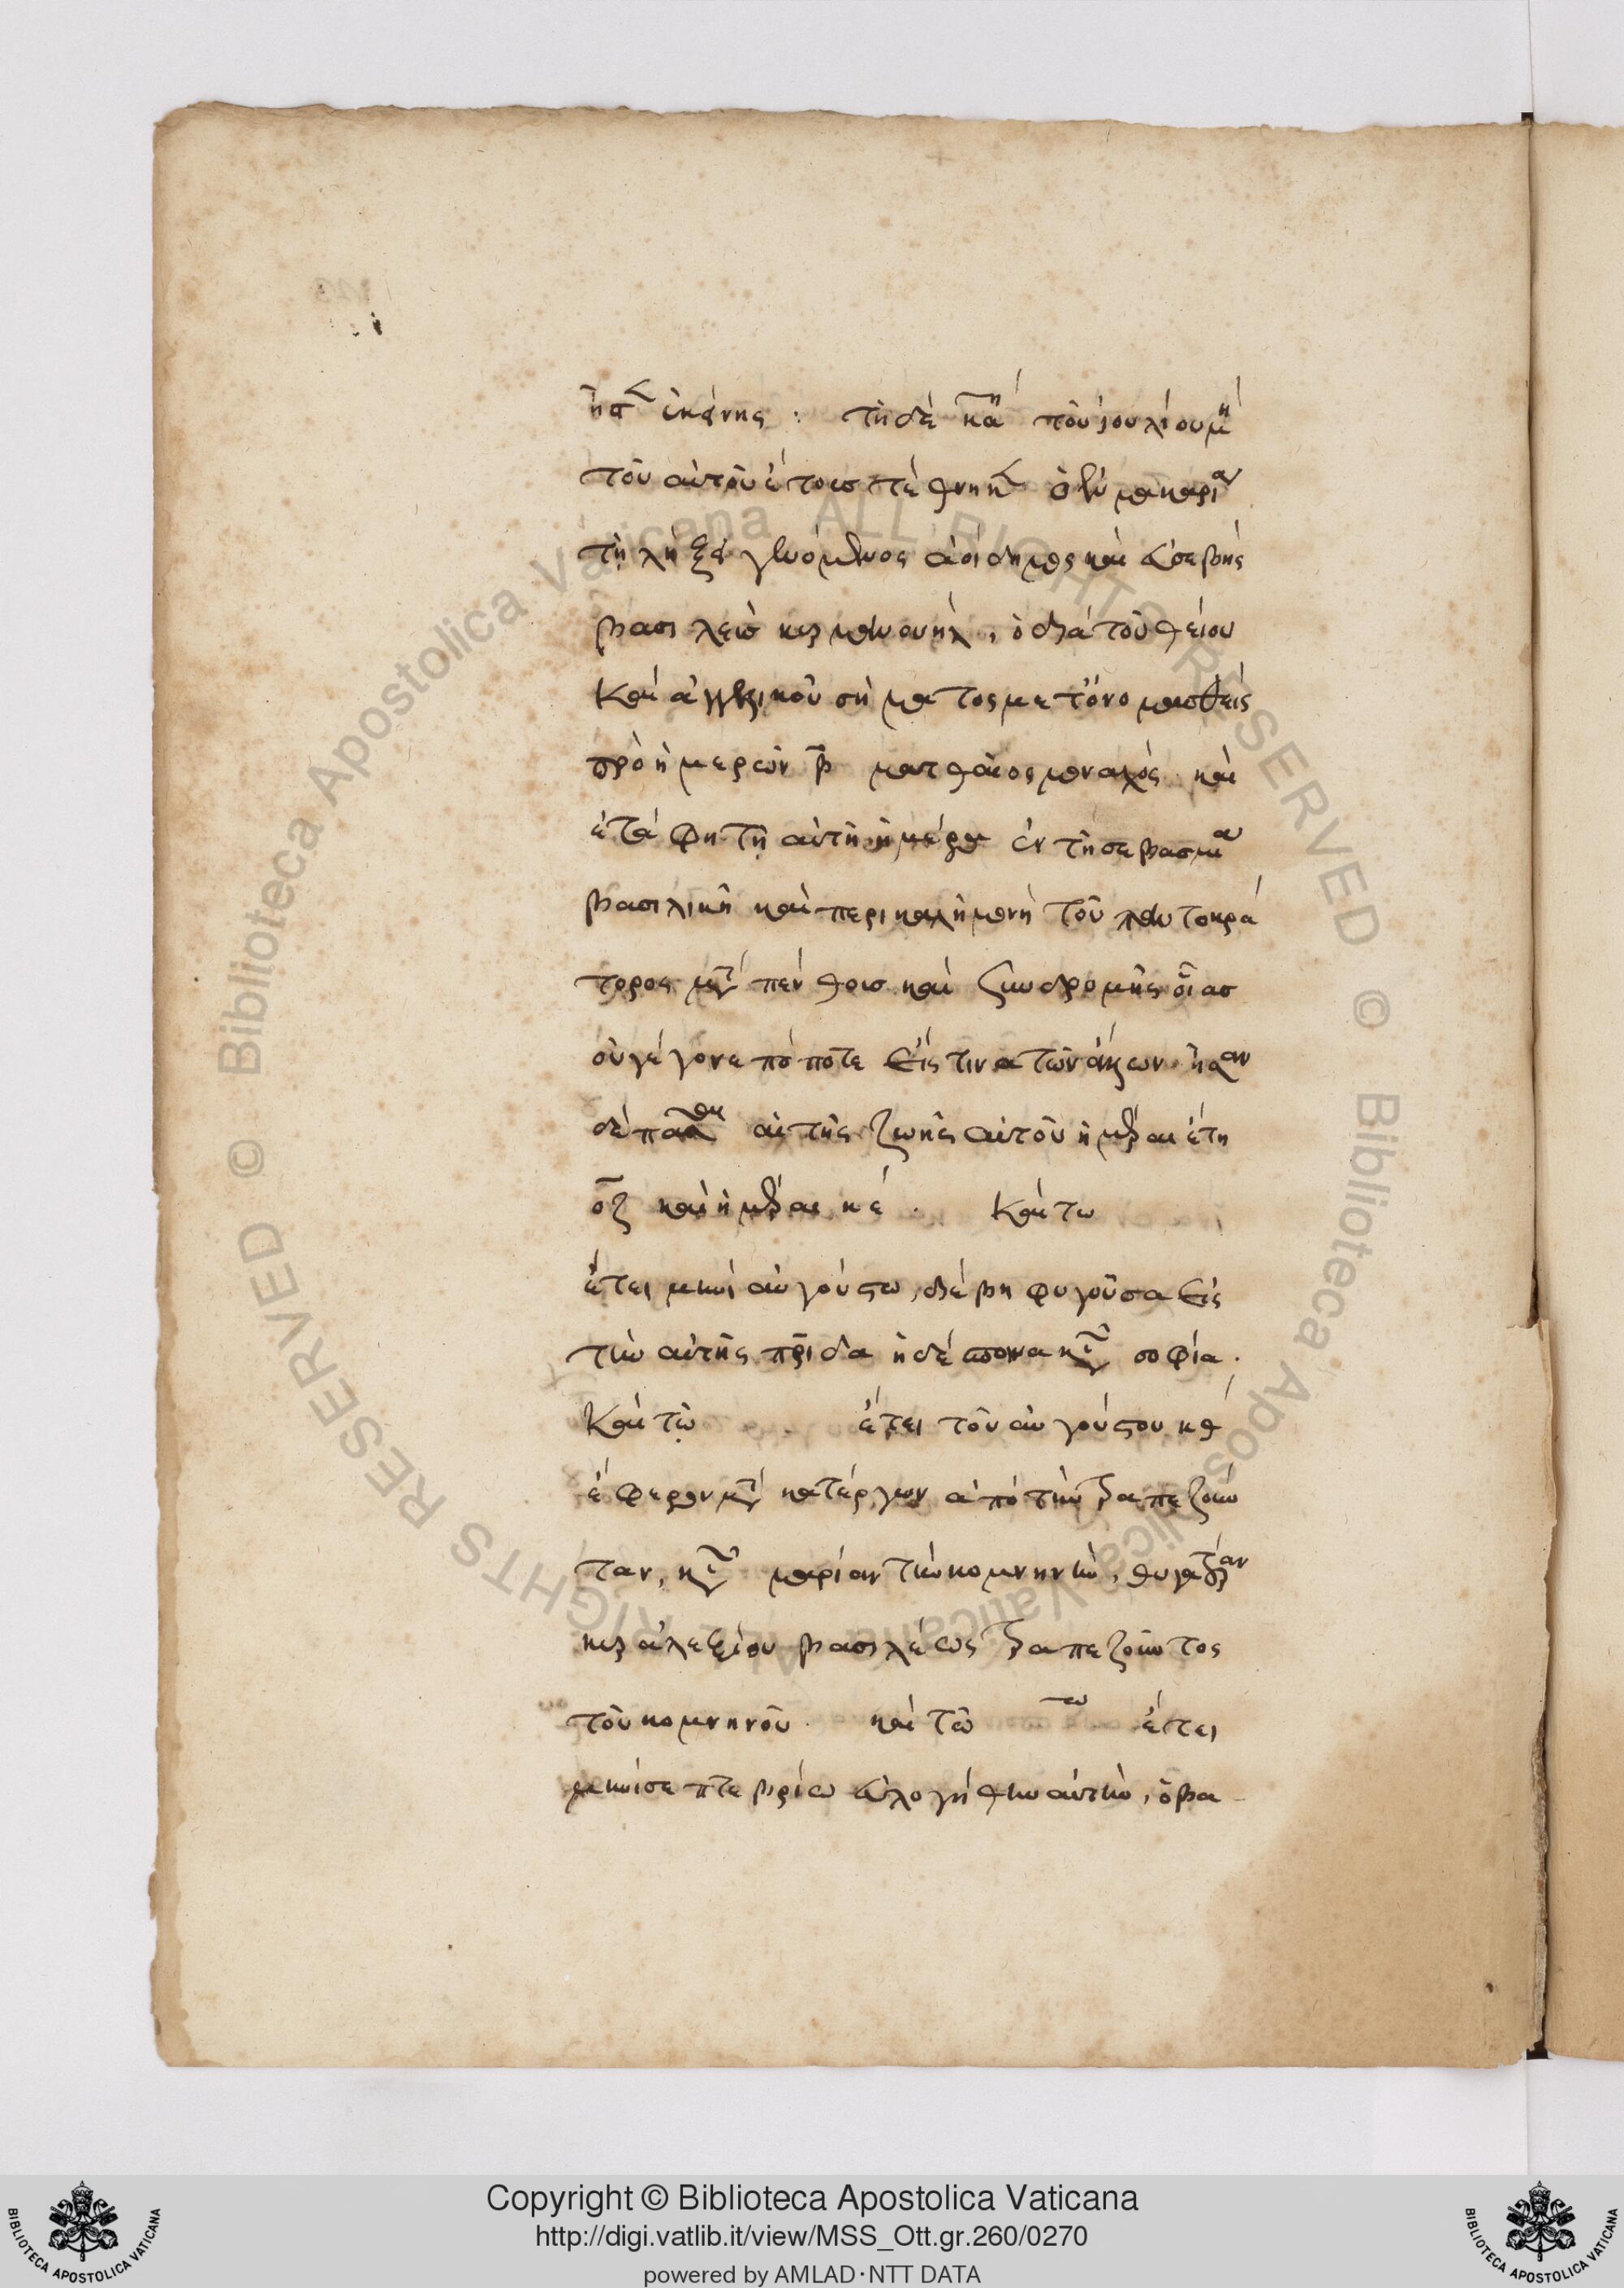 ἧστ ἐκείνης : τῆ δὲ κα΄ τοῦ ἰουλίου μη
τοῦ αὐτοῦ ἔτους τέθνηκ ὁ ἐν μακαρία
τῇ λήξει γενόμενος ἀοίδημος καὶ εὐσεβὴς
βασιλεὺς κυρ μανουὴλ, ὁ διὰ τοῦ θείου
καὶ ἀγγελικοῦ σχήματος μετονομασθεὶς
πρὸ ἡμερῶν β ματθαῖος μοναχός· καὶ
ἐτάφη τῇ αὐτῇ ἡμέρα ἐν τῇ σεβασμία
βασιλικῆ καὶ περικαλῆ μονῆ τοῦ παντοκρά
τορος μετὰ πένθους καὶ συνδρομῆς οἵας
οὐ γέγονε πόποτε εἴς τινα τῶν ἄλλων ἦσαν
δὲ πᾶσαι αἱ τῆς ζωῆς αὐτοῦ ἡμέραι ἔτη
οζ καὶ ἡμέραι κε΄. Καὶ τω
ἔτει μηνὶ αὐγούστω, διέβη φυγοῦσα εἰς
τὴν αὐτῆς πρίδα ἡ δέσποινα κυρὰ σοφία.
Καὶ τῷ ἔτει τοῦ αὐγούστου κθ΄
ἔφερον μετὰ κατέργων ἀπὸ τὴν τραπεζοῦν
ταν, κυρὰ μαρίαν τὴν κομνηνὴν, θυγατέραν
κυρ ἀλεξίου βασιλέως τραπεζοῦντος
τοῦ κομνηνοῦ. καὶ τῶ ἔτει
μηνὶ σεπτεβρίω εὐλογήθην αὐτὴν, ὁ βα
Copyright © Biblioteca Apostolica Vaticana
http://digi.vatlib.it/view/MSS_Ott.gr.260/0270
powered by AMLAD·NTT DATA